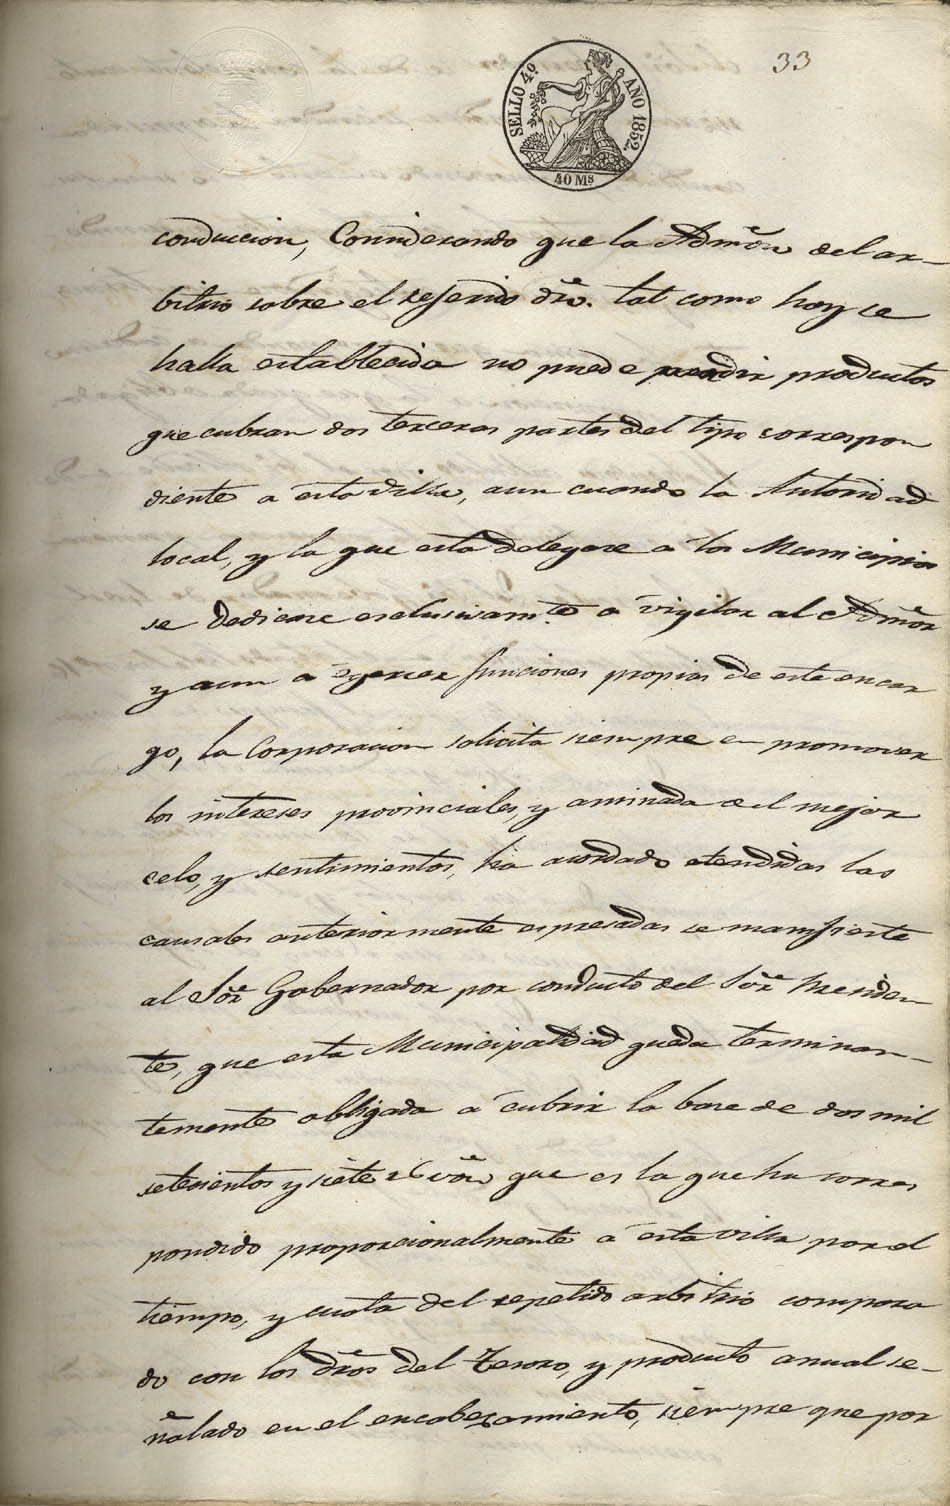 33
SELLO 4º AÑO 1852.
40 Ms
conduccion, Considerando que la Admõn del ar-
bitrio sobre el referido dro. tal como hoy se
halla establecida no puede rendir productos
que cubran dos terceras partes del tipo correspon
diente a esta villa, aun cuando la Autoridad
local, y la que esta delegare a los Municipios
se dedicare esclusivamte. a vigilar al Admõr
y aun a egercer funciones propias de este encar
go, la Corporacion solicita siempre en promover
los intereses provinciales, y aminada del mejor
celo, y sentimientos, ha acordado atendidas las
causales anteriormente espresadas se manifieste
al Sõr Gobernador por conducto del Sõr Presiden
te, que esta Municipalidad queda terminan-
temente obligada a cubrir la base de dos mil
setecientos y siete rs võn que es la que ha corres
pondido proporcionalmente a esta villa por el
tiempo, y cuota del repetido arbitrio compara
do con los drõs del Tesoro, y producto anual se-
ñalado en el encabezamiento, siempre que por